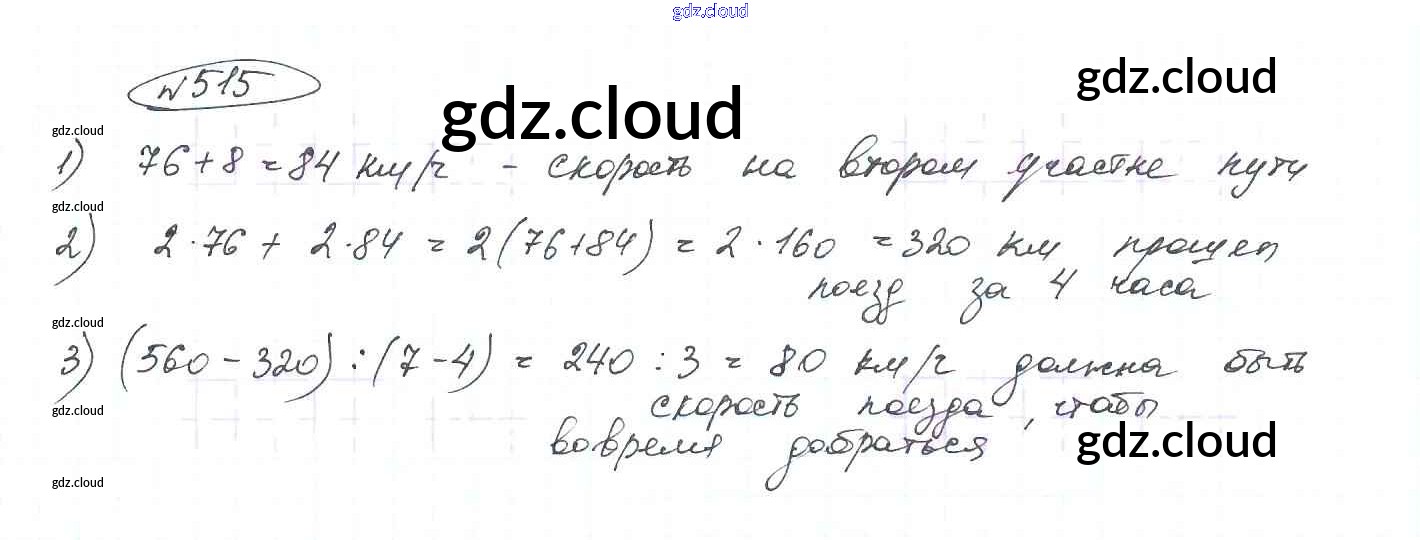 gdz.cloud
№515
gdz.cloud
gdz.cloud
gdz.cloud
1) 76+8=84 км/ч - скорость на втором участке пути
gdz.cloud
2) 2·76 + 2·84 = 2(76+84) = 2·160 = 320 км прошел
поезд за 4 часа
gdz.cloud
3) (560-320):(7-4) = 240:3 = 80 км/ч должна быть
gdz.cloud
скорость поезда, чтобы
вовремя добраться
gdz.cloud
gdz.cloud